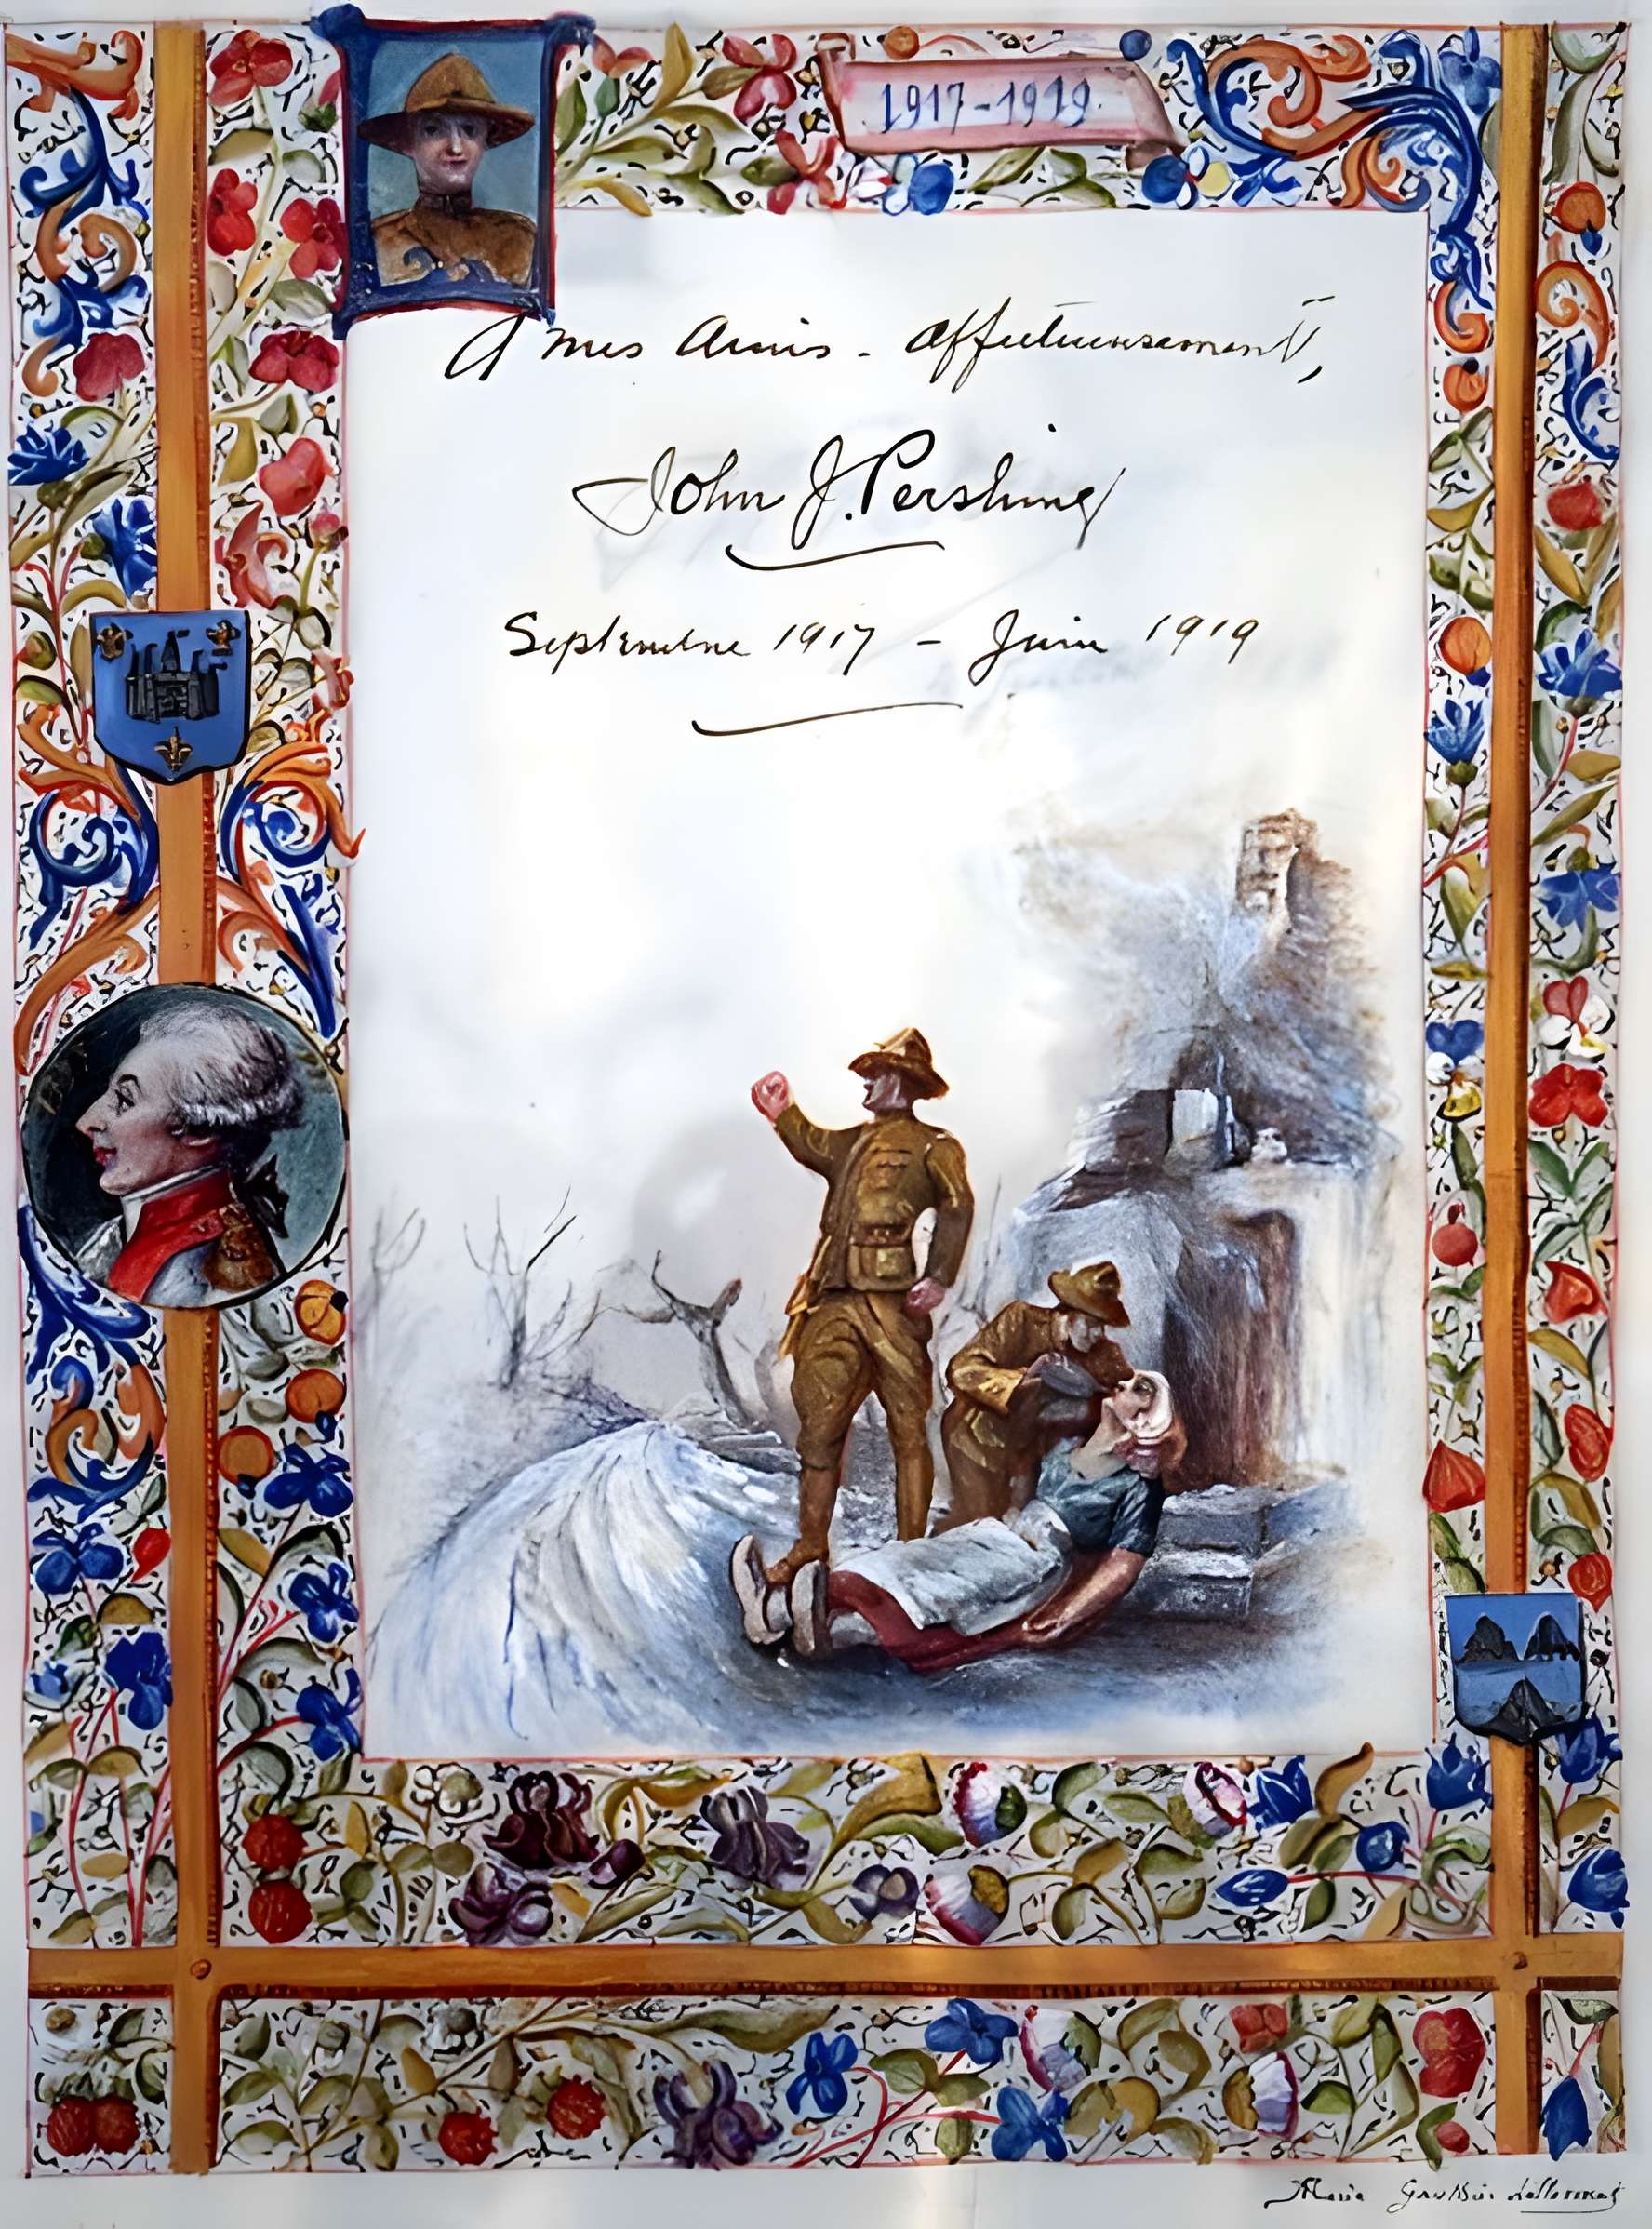 1917-1919.
A mes Amis - affectueusement,
John J. Pershing
Septembre 1917 - Juin 1919
Maria